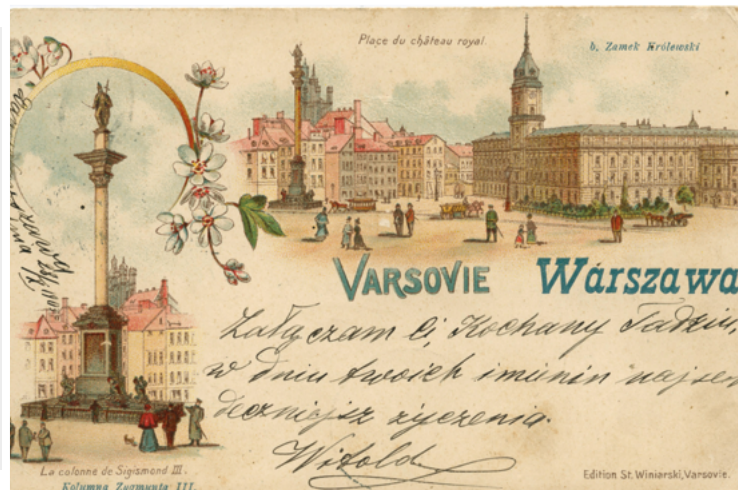 Place du château royal.
b. Zamek Królewski
VARSOVIE Warszawa
Załączam Ci, Kochany Tadziu,
w dniu twoich imienin najser
deczniejsz życzenia.
Witold
La colonne de Sigismond III.
Kolumna Zygmunta III.
Edition St. Winiarski, Varsovie.